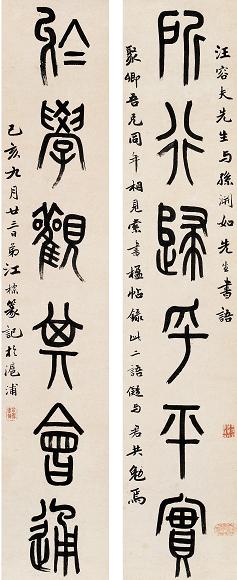 汪容夫先生与孫渊如先生書語
所行歸乎平實
聚卿吾兄同年相見索書楹帖錄此二語儗与君共勉焉
於學觀其會通
己亥九月廿三日弟江標篆記於滬浦